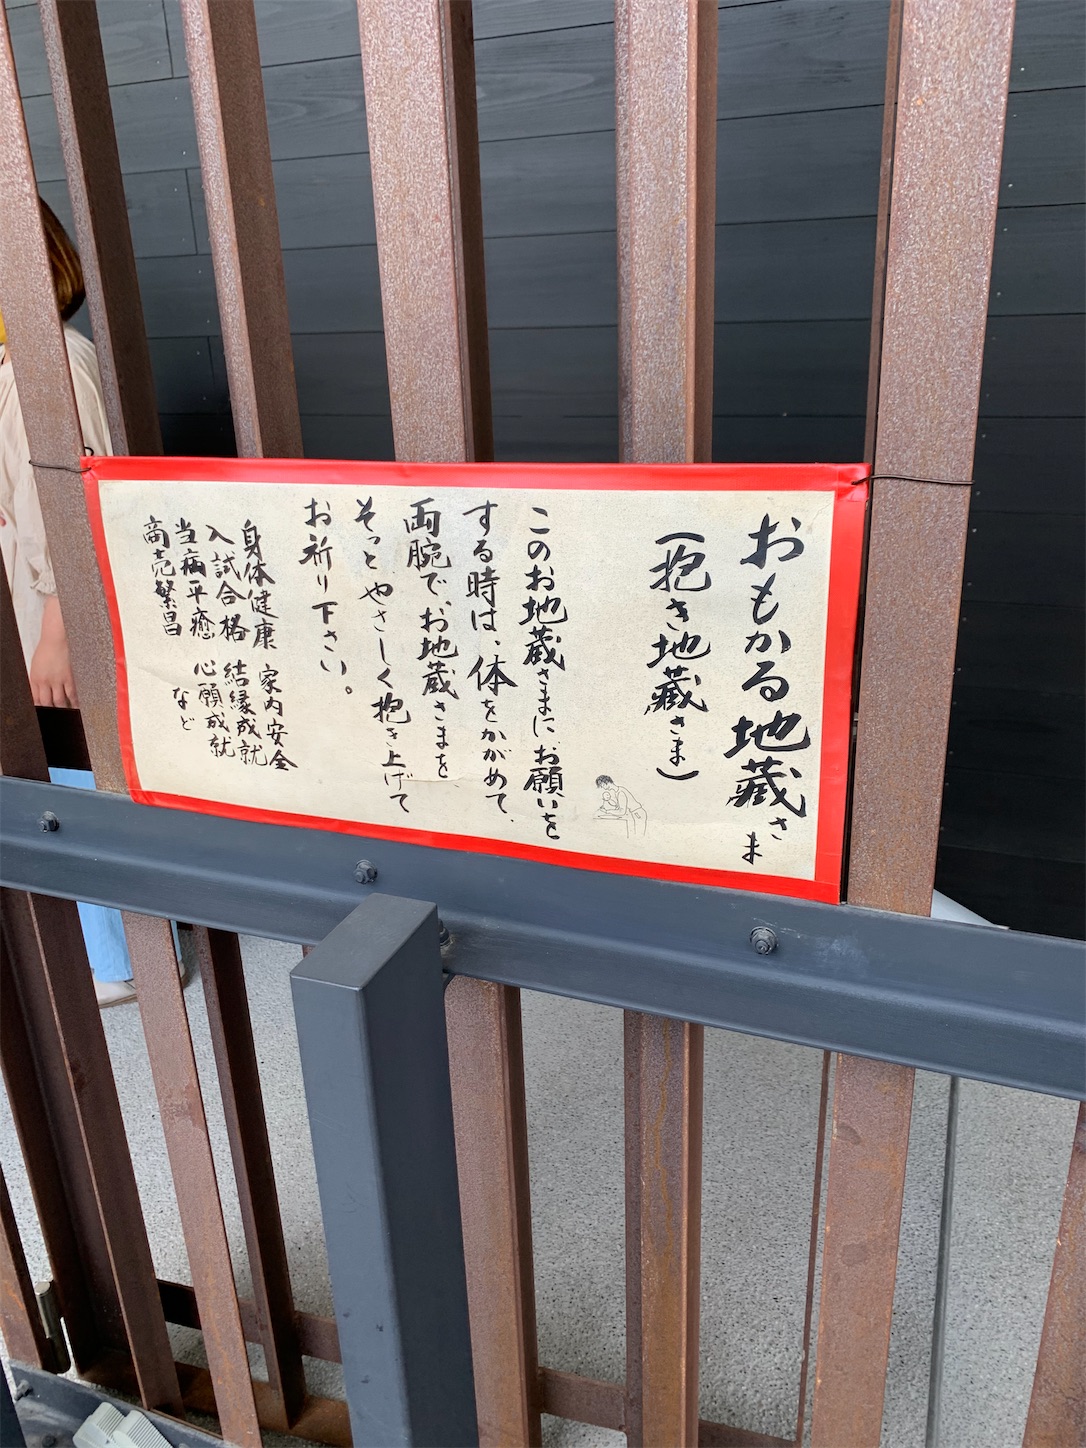 おもかる地蔵さま
(抱き地蔵さま)
このお地蔵さまにお願いを
する時は、体をかがめて、
両腕で、お地蔵さまを
そっとやさしく抱き上げて
お祈り下さい。
身体健康 家内安全
入試合格 結縁成就
当病平癒 心願成就
商売繁昌 など